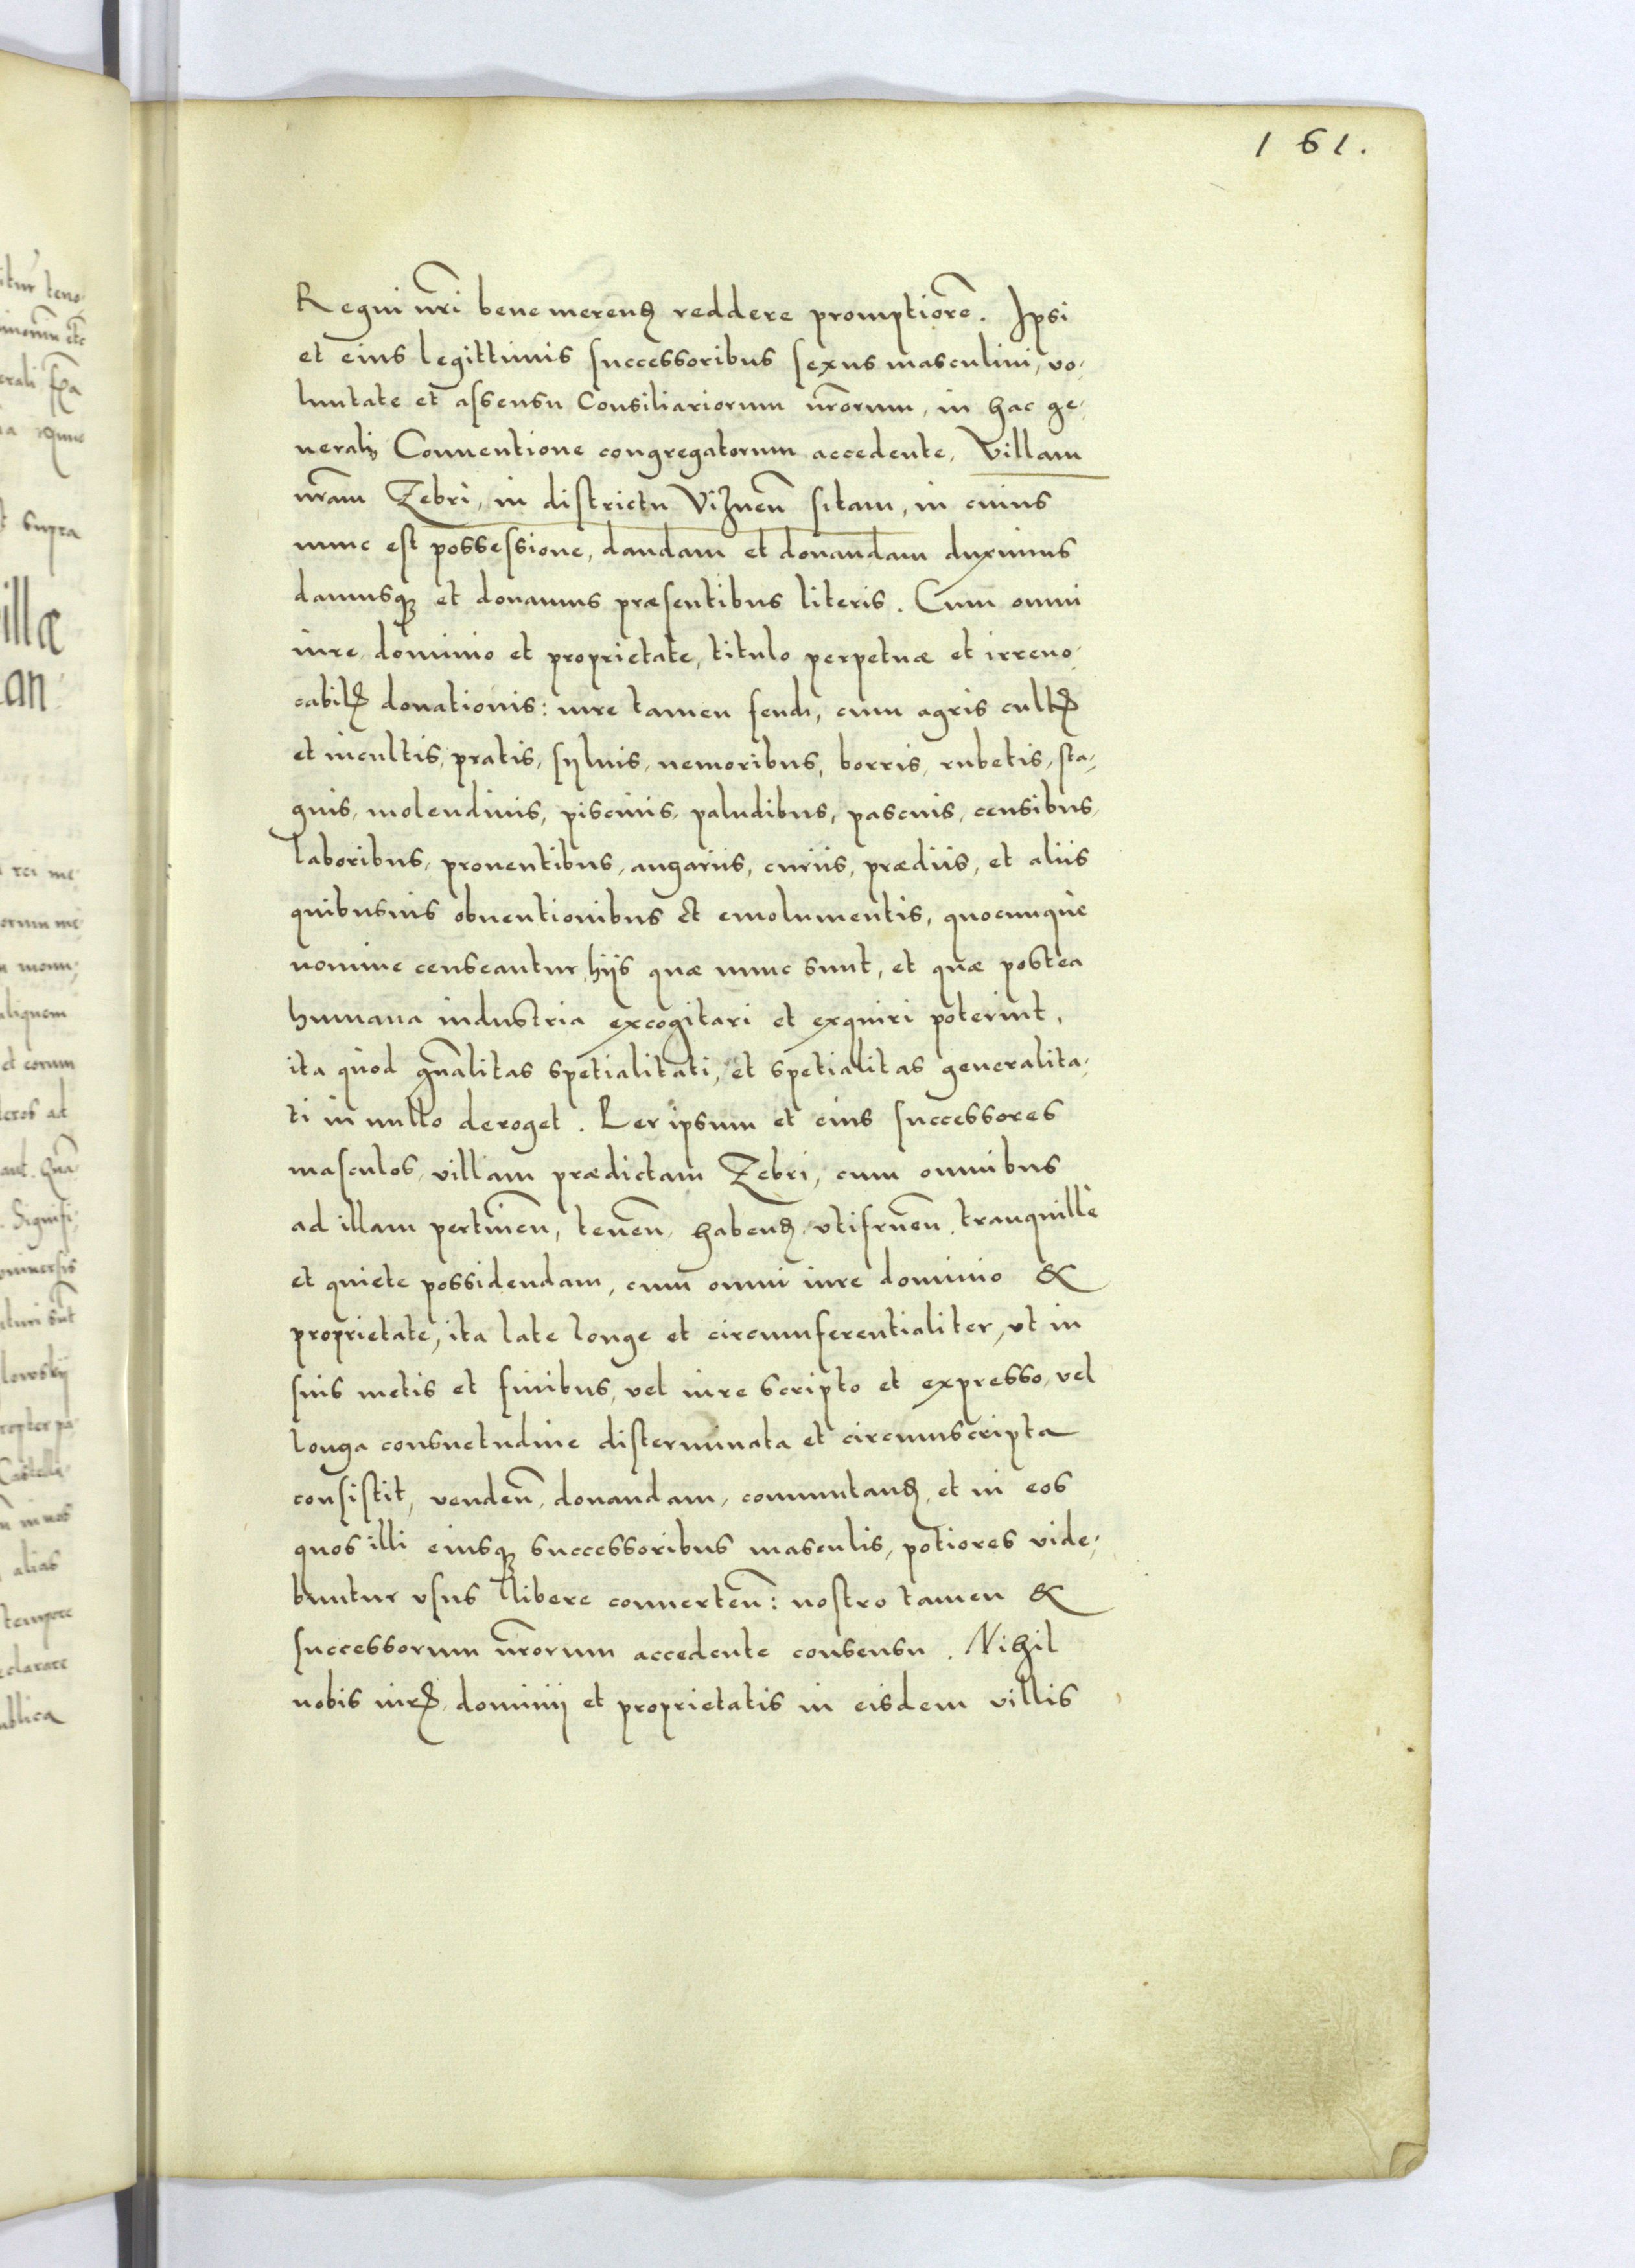 161.
Regni nr̃i benemerenꝭ reddere promptiorẽ. Ipsi
et eius legittimis successoribus sexus masculini, vo⸗
luntate et assensu Consiliariorum nr̃orum, in hac ge⸗
nerali Conuentione congregatorum accedente, Villam
nr̃am Zebri, in districtu Viznen̄ sitam, in cuius
nunc est possessione, dandam et donandam duximus
damusqꝫ et donamus præsentibus literis. Cum omni
iure dominio et proprietate, titulo perpetuæ et irreuo⸗
cabilꝭ donationis: iure tamen feudi, cum agris cultꝭ
et incultis, pratis, syluis, nemoribus, borris, rubetis, sta⸗
gnis, molendinis, piscinis, paludibus, pascuis, censibus,
laboribus, prouentibus, angariis, curiis, prædiis, et aliis
quibusuis obuentionibus et emolumentis, quocunquè
nomine censeantur, hijs quæ nunc sunt, et quæ postea
humana industria excogitari et exquiri poterint,
ita quòd gñalitas spetialitati, et spetialitas generalita⸗
ti in nullo deroget. Per ipsum et eius successores
masculos, villam prædictam Zebri, cum omnibus
ad illam pertinen̄, tenen̄, habenꝭ, vtifruen̄, tranquillè
et quiete possidendam, cum omni iure dominio &
proprietate, ita late longe et circumferentialiter, vt in
suis metis et finibus, vel iure scripto et expresso, vel
longa consuetudine disterminata et circumscripta
consistit, venden̄, donandam, commutanꝭ, et in eos
quos illi eiusqꝫ successoribus masculis, potiores vide⸗
buntur vsus libere conuerten̄: nostro tamen &
successorum nr̃orum accedente consensu. Nihil
nobis iurꝭ, dominij et proprietatis in eisdem villis